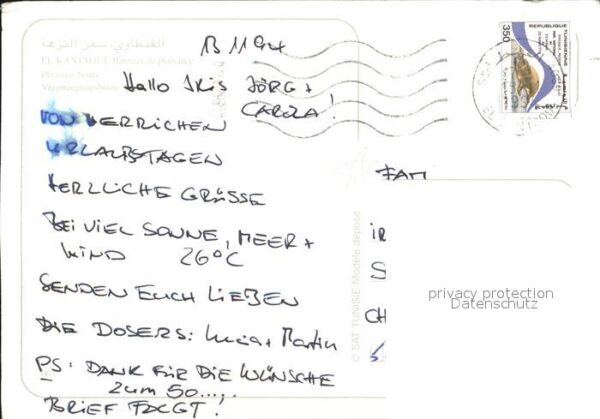 القنطاوي سفن النزهة
EL KANTAOUI Bateaux de plaisance
Plaisance boats
Vergnügungsboote
Hallo Iris Jörg +
CAROLA!
VON HERRLICHEN
URLAUBSTAGEN
HERZLICHE GRÜSSE
BEI VIEL SONNE, MEER +
WIND 26°C
SENDEN EUCH LIEBEN
DIE DOSERS: Luzia + Martin
PS: DANK FÜR DIE WÜNSCHE
zum 50...,
BRIEF FOLGT!
REPUBLIQUE
TUNISIENNE
350
© SAT TUNISIE Modèle déposé
FAM
S
CH
privacy protection
Datenschutz